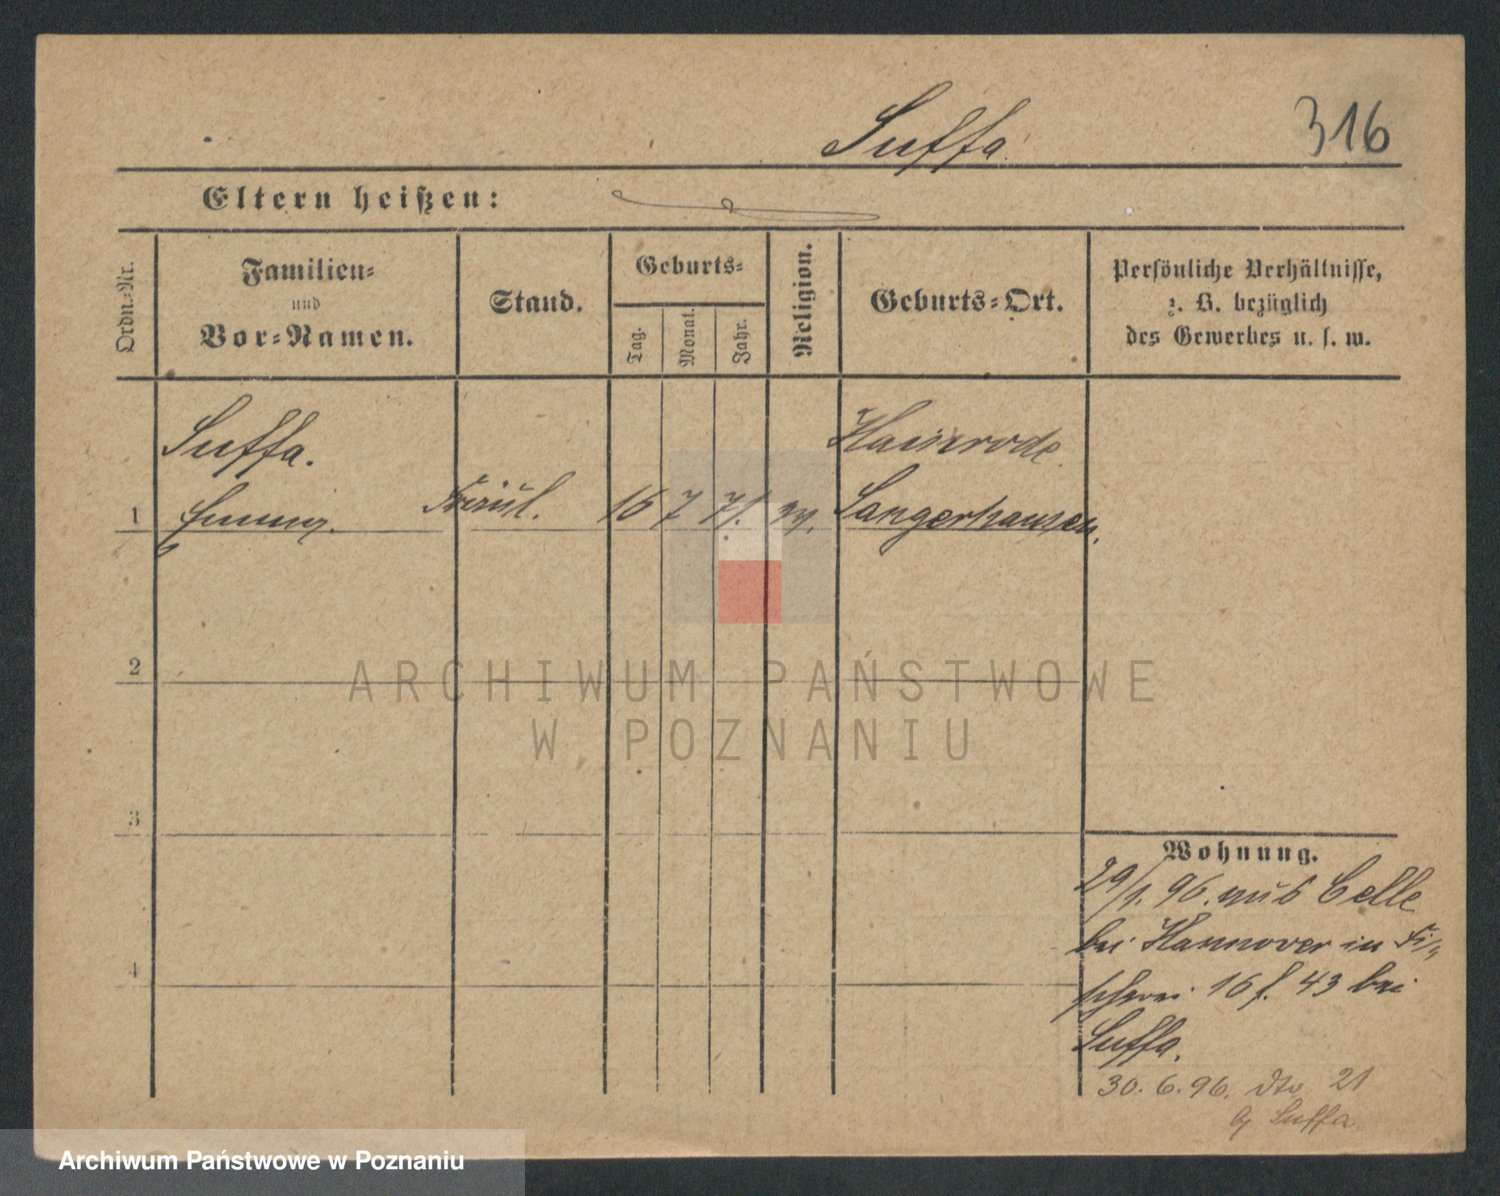 Suffa
316
Eltern heißen:
Ordn.=Nr.
Familien=
und
Vor=Namen.
Stand.
Geburts=
Tag.
Monat.
Jahr.
Religion.
Geburts=Ort.
Persönliche Verhältnisse,
z. B. bezüglich
des Gewerbes u. s. w.
Suffa.
Hainrode
1
Fräul.
16 7 71.
Sangerhausen.
2
3
4
Wohnung.
29/1. 96. aus Celle
bei Hannover in Fi=
scherei 16 f. 43 bei
Suffa.
30. 6. 96. dto 21
bj Suffa
ARCHIWUM PAŃSTWOWE
W POZNANIU
Archiwum Państwowe w Poznaniu